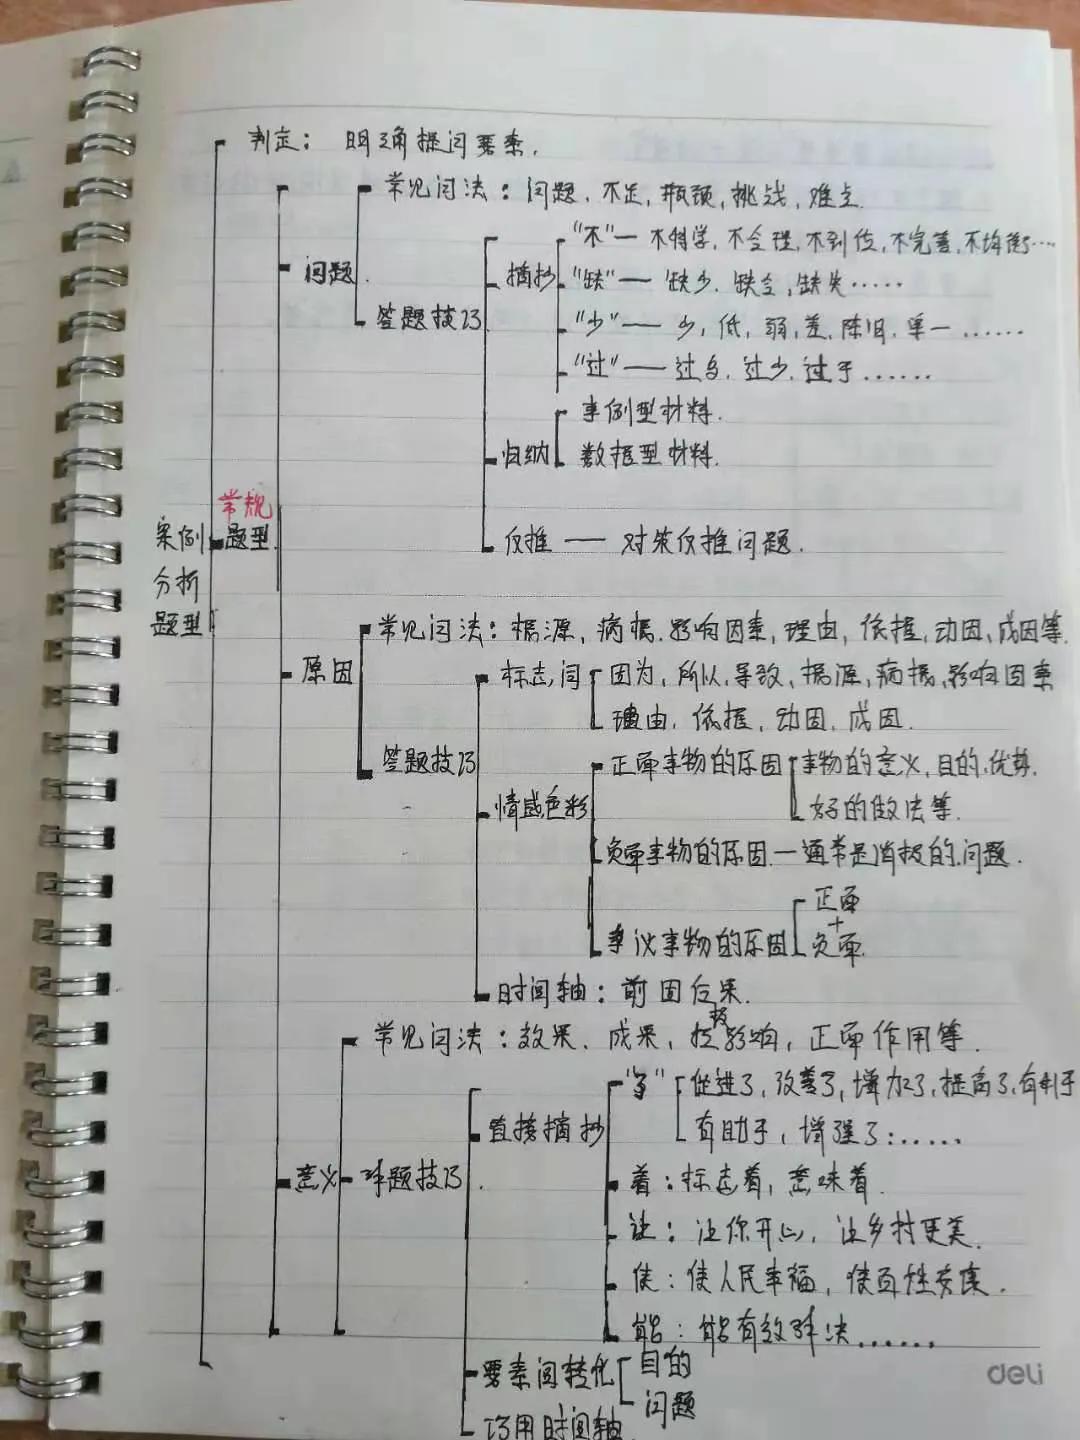 判定：明确提问要素.
常见问法：问题、不足，瓶颈，挑战，难点.
问题.
答题技巧
摘抄
"不"— 不科学，不合理，不到位，不完善，不均衡…
"缺"— 缺少. 缺乏，缺失……
"少"— 少，低，弱，差，陈旧，单一……
"过"— 过多，过少，过于……
归纳
事例型材料.
数据型材料.
反推 — 对策反推问题.
案例
分析
题型
常规
题型
原因
常见问法：根源，病根，影响因素，理由，依据，动因，成因等.
答题技巧
标志词
因为，所以，导致，根源，病根，影响因素
理由，依据，动因，成因.
情感色彩
正面事物的原因
事物的意义，目的，优势.
好的做法等.
负面事物的原因 — 通常是消极的问题.
争议事物的原因
正面
+
负面
时间轴：前因后果.
意义
常见问法：效果、成果，积极影响，正面作用等.
解题技巧.
直接摘抄
"了"
促进了，改善了，增加了，提高了，有利于
有助于，增强了：……
着：标志着，意味着.
让：让你开心，让乡村更美.
使：使人民幸福，使百姓安康.
能：能有效解决……
要素间转化
目的
问题
巧用时间轴.
deli